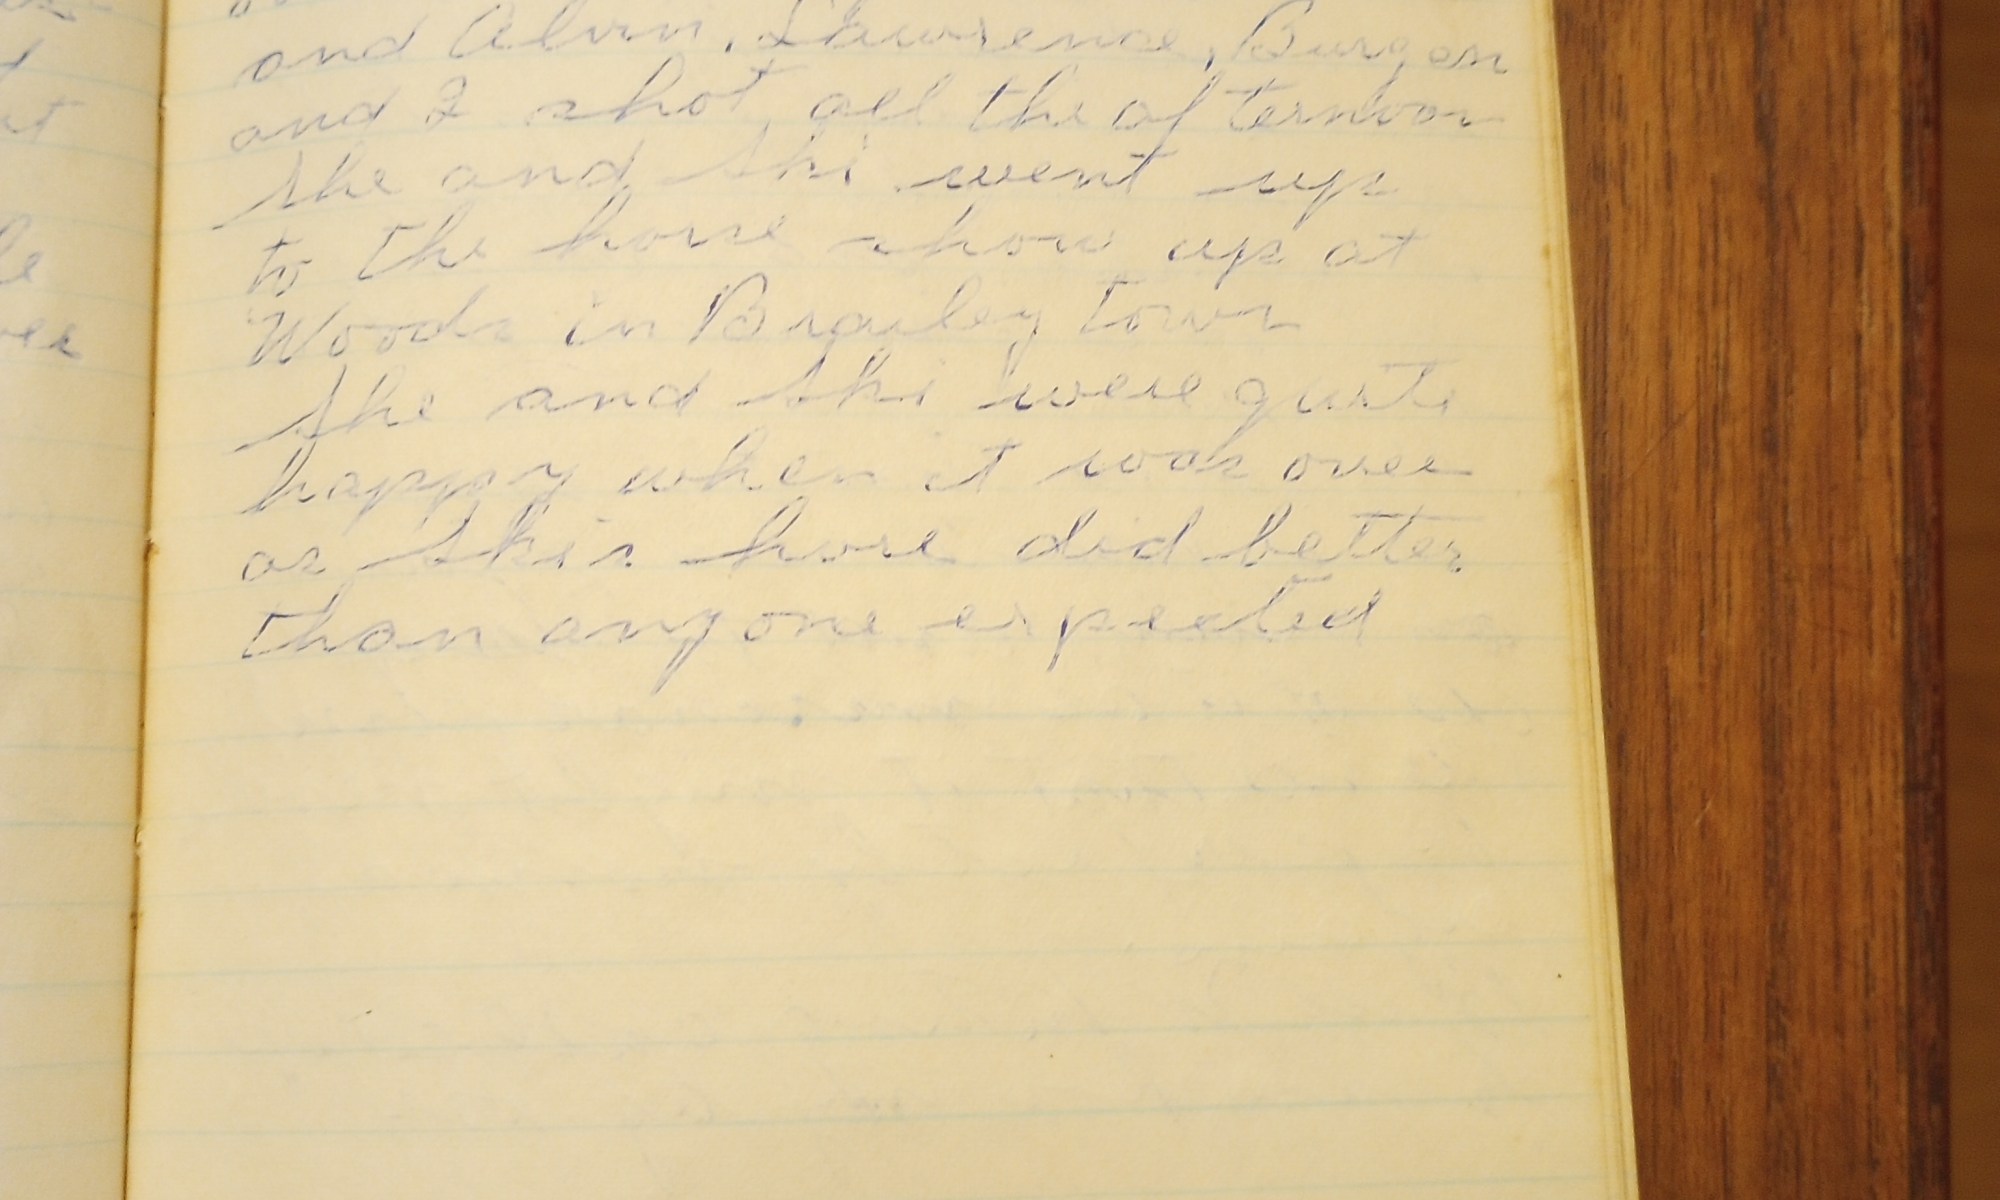 and Alvin, Lawrence, Burgen
and I shot all the afternoon
She and Ski went up
to the horse show up at
Woods in Brayley town
She and Ski were quite
happy when it was over
as Skis horse did better
than anyone expected